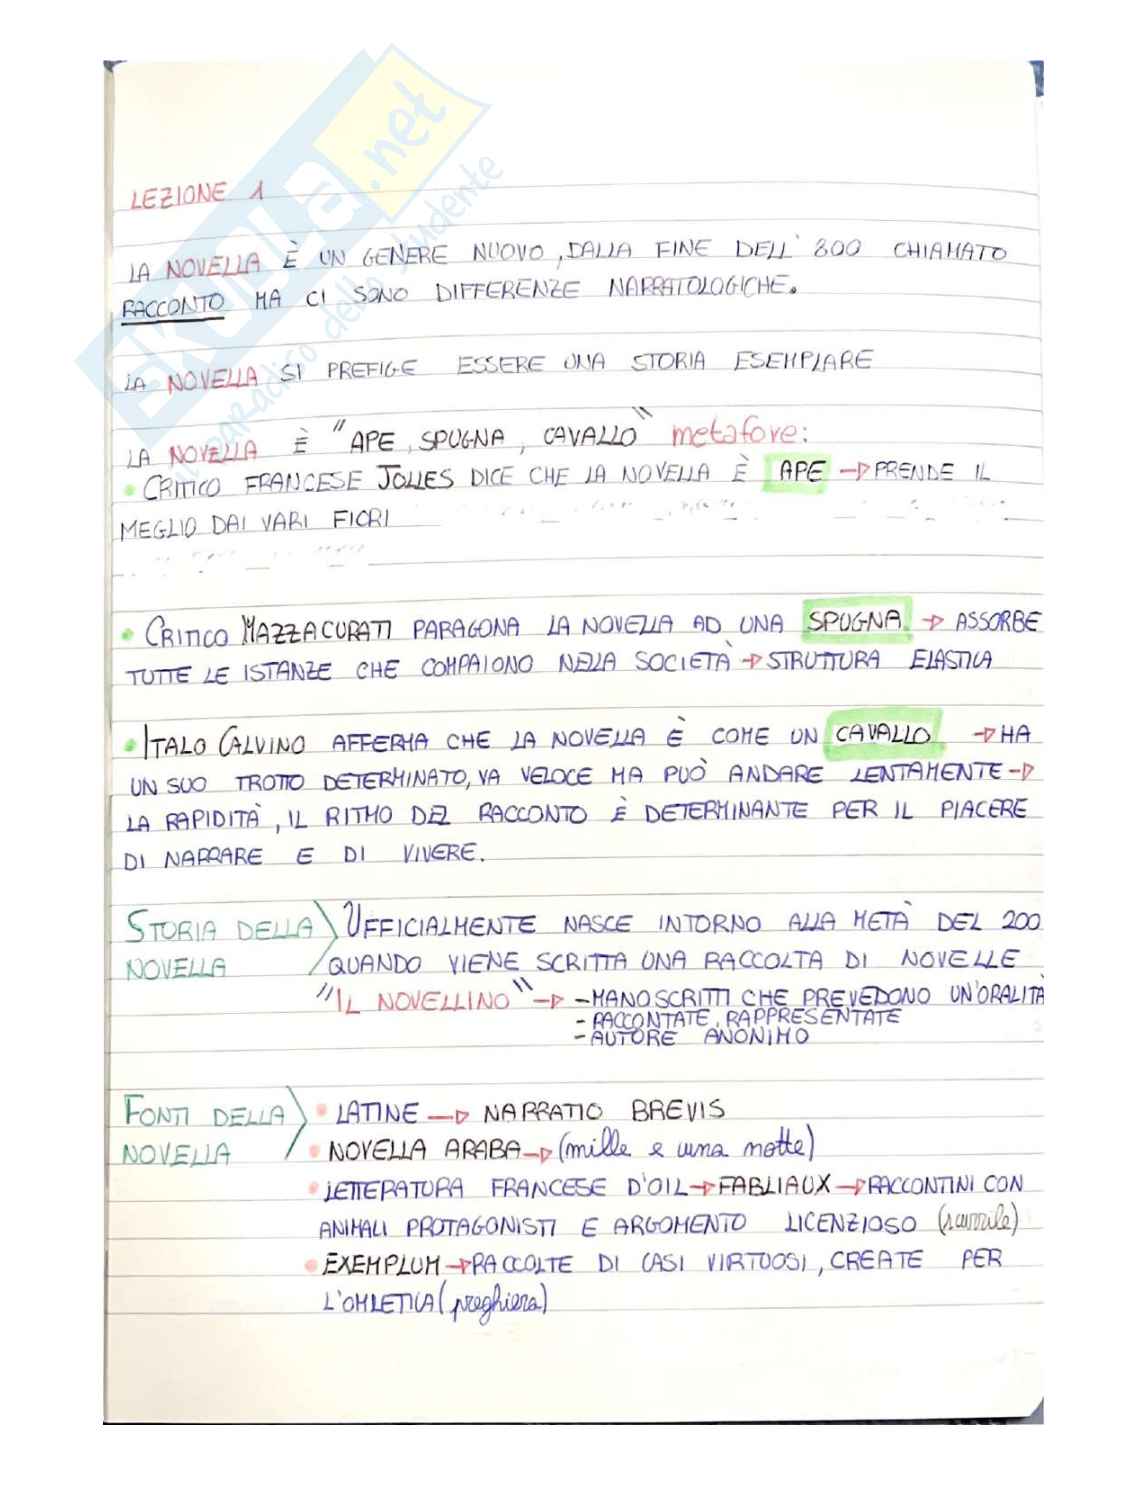 LEZIONE 1
LA NOVELLA È UN GENERE NUOVO, DALLA FINE DELL' 800 CHIAMATO
RACCONTO MA CI SONO DIFFERENZE NARRATOLOGICHE.
LA NOVELLA SI PREFIGE ESSERE UNA STORIA ESEMPLARE
LA NOVELLA È "APE, SPUGNA, CAVALLO" metafore:
• CRITICO FRANCESE JOLLES DICE CHE LA NOVELLA È APE → PRENDE IL
MEGLIO DAI VARI FIORI
• CRITICO MAZZACURATI PARAGONA LA NOVELLA AD UNA SPUGNA → ASSORBE
TUTTE LE ISTANZE CHE COMPAIONO NELLA SOCIETÀ → STRUTTURA ELASTICA
• ITALO CALVINO AFFERMA CHE LA NOVELLA È COME UN CAVALLO → HA
UN SUO TROTTO DETERMINATO, VA VELOCE MA PUÒ ANDARE LENTAMENTE →
LA RAPIDITÀ, IL RITMO DEL RACCONTO È DETERMINANTE PER IL PIACERE
DI NARRARE E DI VIVERE.
STORIA DELLA NOVELLA
UFFICIALMENTE NASCE INTORNO ALLA METÀ DEL 200
QUANDO VIENE SCRITTA UNA RACCOLTA DI NOVELLE
"IL NOVELLINO" → - MANOSCRITTI CHE PREVEDONO UN'ORALITÀ
- RACCONTATE, RAPPRESENTATE
- AUTORE ANONIMO
FONTI DELLA NOVELLA
• LATINE → NARRATIO BREVIS
• NOVELLA ARABA → (mille e una notte)
• LETTERATURA FRANCESE D'OIL → FABLIAUX → RACCONTINI CON
ANIMALI PROTAGONISTI E ARGOMENTO LICENZIOSO (scurrile)
• EXEMPLUM → RACCOLTE DI CASI VIRTUOSI, CREATE PER
L'OMILETICA (preghiera)
SKUOLA.net
il paradiso dello studente